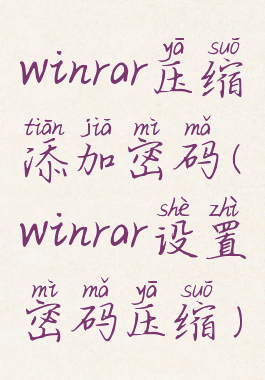 yā suō
winrar压缩
tiān jiā mì mǎ
添加密码(
shè zhì
winrar设置
mì mǎ yā suō
密码压缩)